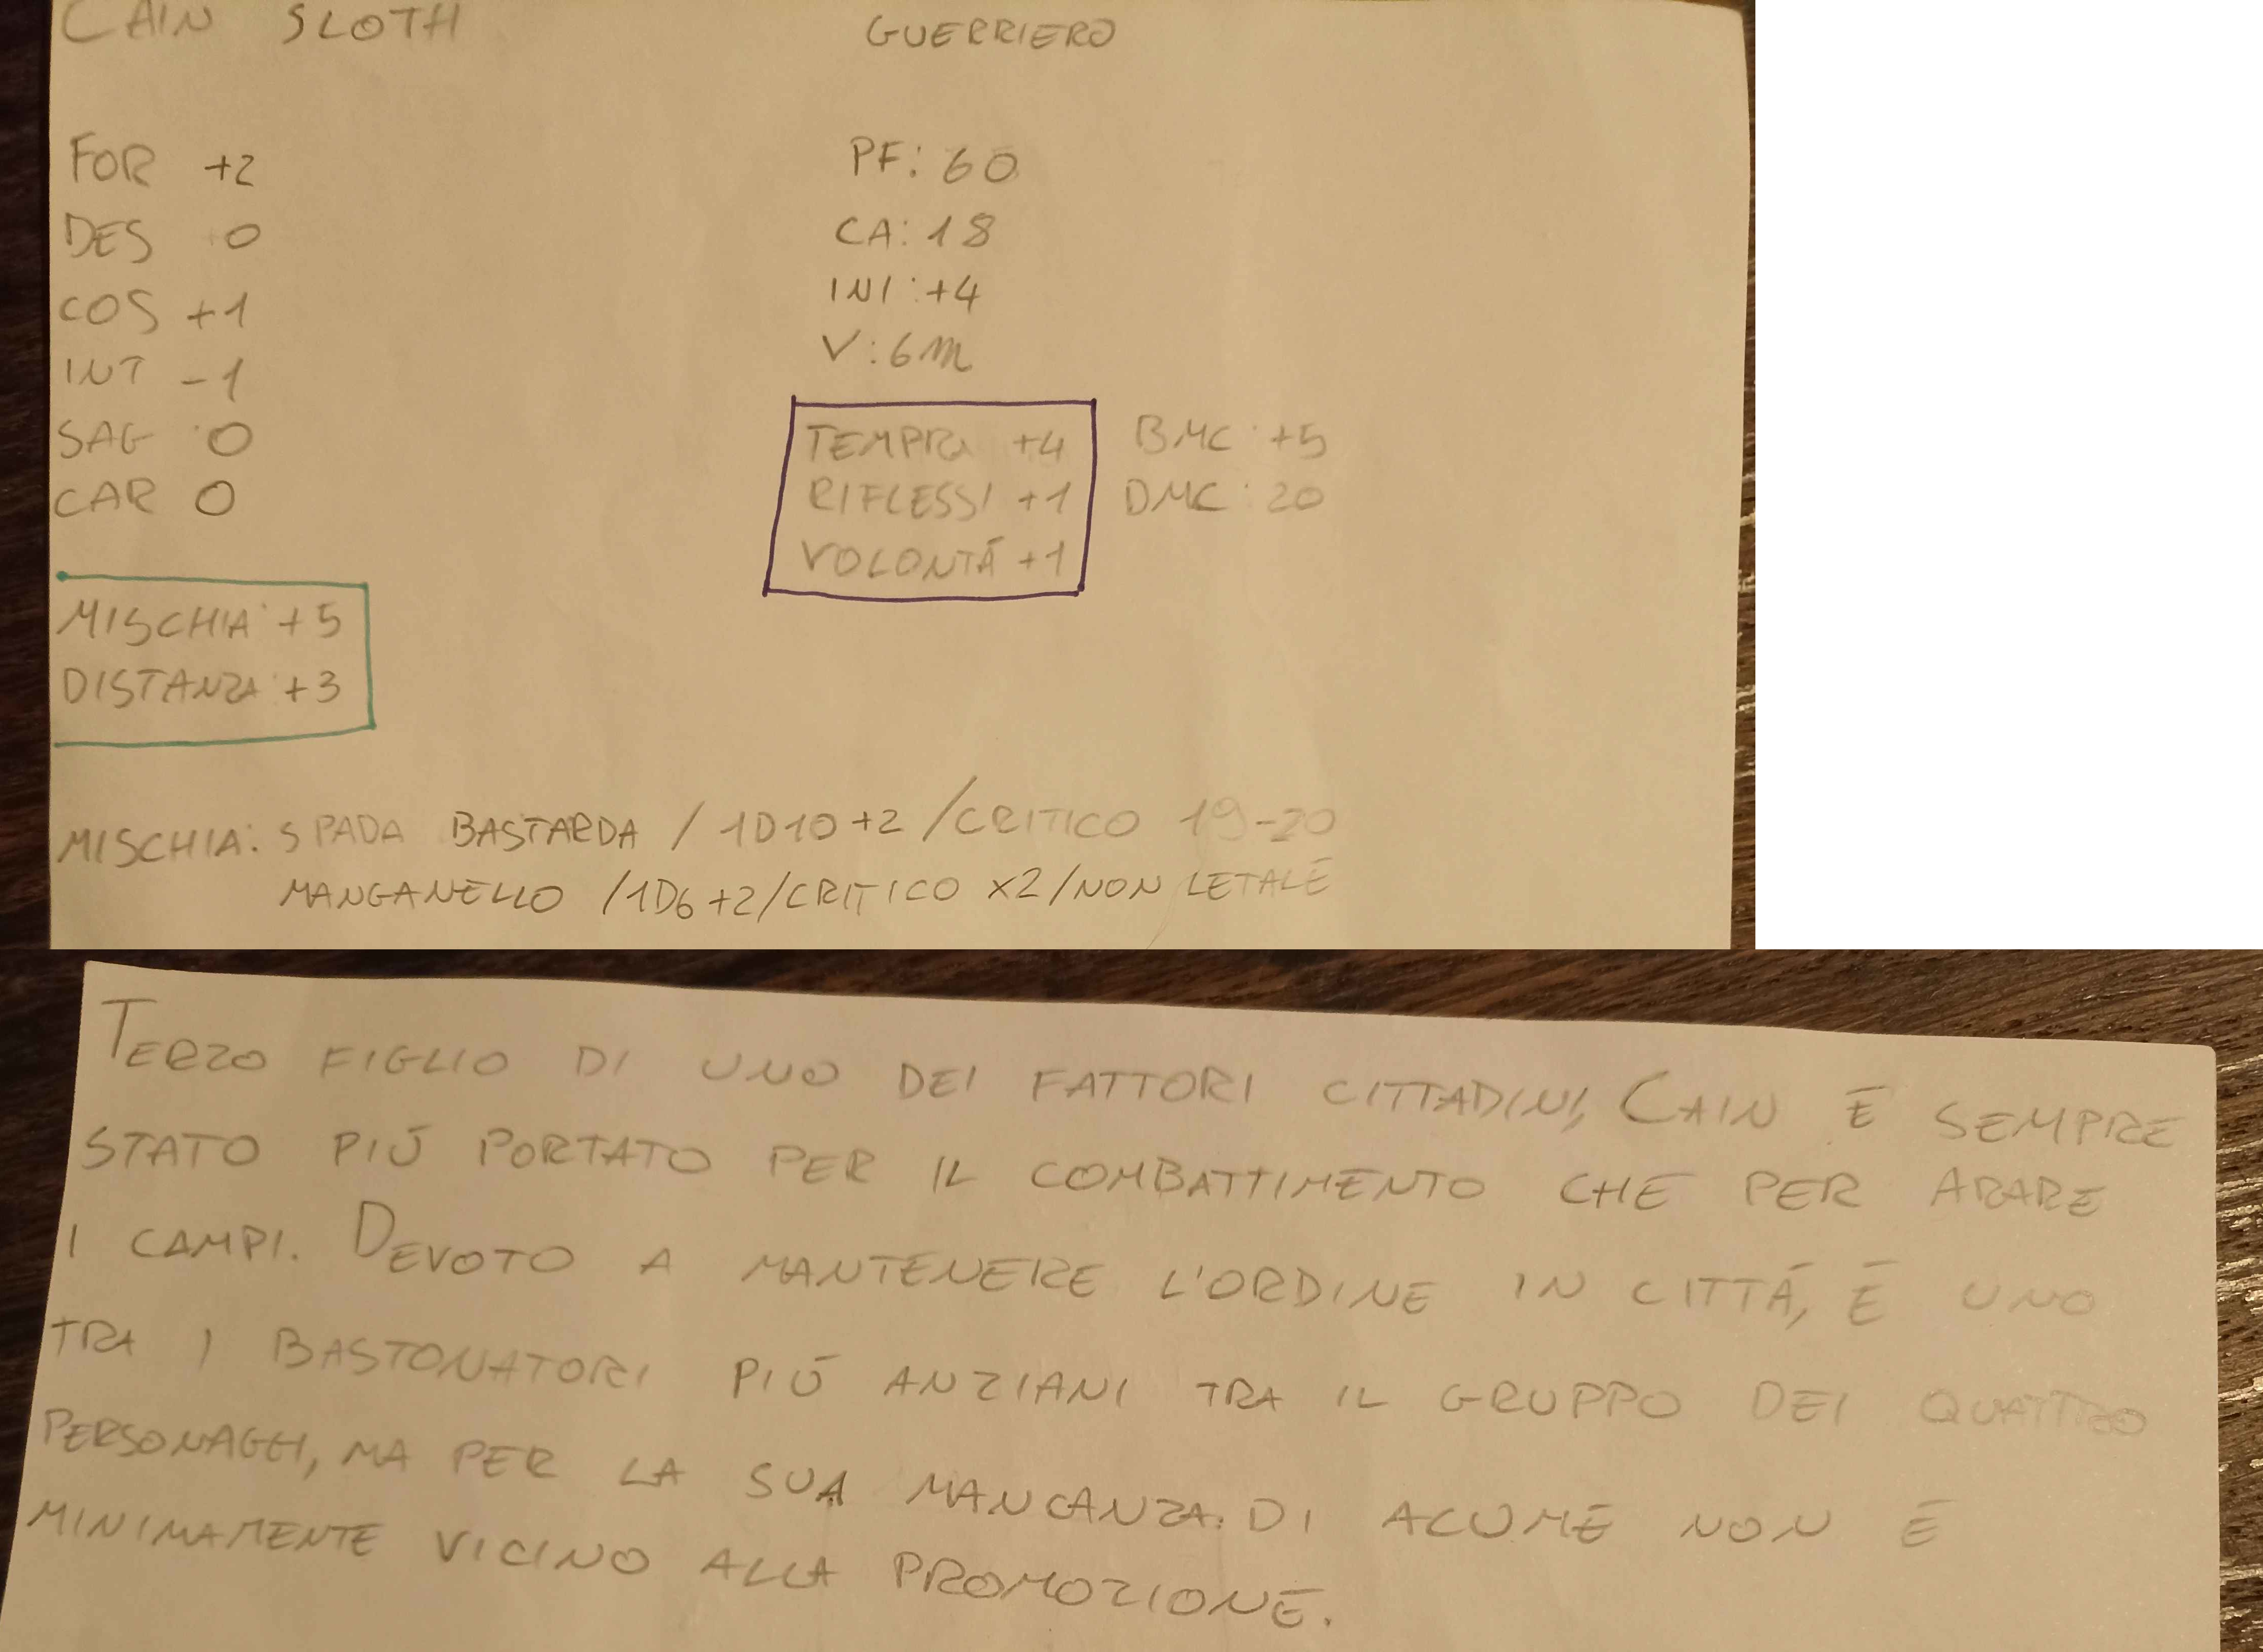 CAIN SLOTH GUERRIERO
FOR +2
DES 0
COS +1
INT -1
SAG 0
CAR 0
PF: 60
CA: 18
INI: +4
V: 6m
TEMPRA +4
RIFLESSI +1
VOLONTÀ +1
BMC: +5
DMC: 20
MISCHIA: +5
DISTANZA: +3
MISCHIA: SPADA BASTARDA / 1D10+2 / CRITICO 19-20
MANGANELLO / 1D6+2 / CRITICO x2 / NON LETALE
TERZO FIGLIO DI UNO DEI FATTORI CITTADINI, CAIN È SEMPRE
STATO PIÙ PORTATO PER IL COMBATTIMENTO CHE PER ARARE
I CAMPI. DEVOTO A MANTENERE L'ORDINE IN CITTÀ, È UNO
TRA I BASTONATORI PIÙ ANZIANI TRA IL GRUPPO DEI QUATTRO
PERSONAGGI, MA PER LA SUA MANCANZA DI ACUME NON È
MINIMAMENTE VICINO ALLA PROMOZIONE.